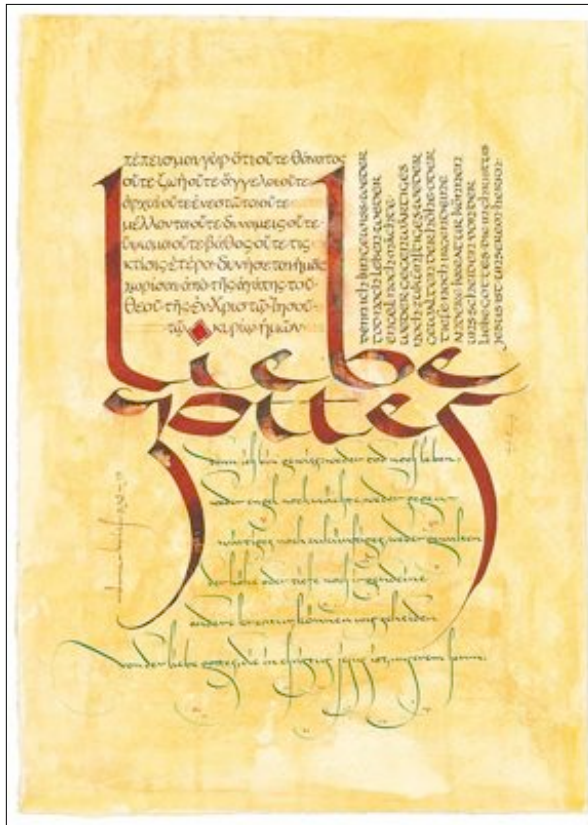 πέπεισμαι γὰρ ὅτι οὔτε θάνατος
οὔτε ζωὴ οὔτε ἄγγελοι οὔτε
ἀρχαὶ οὔτε ἐνεστῶτα οὔτε
μέλλοντα οὔτε δυνάμεις οὔτε
ὕψωμα οὔτε βάθος οὔτε τις
κτίσις ἑτέρα δυνήσεται ἡμᾶς
χωρίσαι ἀπὸ τῆς ἀγάπης τοῦ
θεοῦ τῆς ἐν Χριστῷ Ἰησοῦ
τῷ κυρίῳ ἡμῶν
denn ich bin gewiss: weder
tod noch leben, weder
engel noch mächte,
weder gegenwärtiges
noch zukünftiges, weder
gewalten der höhe oder
tiefe noch irgendeine
andere kreatur können
uns scheiden von der
liebe gottes, die in christus
jesus ist unserem herrn.
liebe
gottes
denn ich bin gewiss: weder tod noch leben,
weder engel noch mächte, weder gegen-
wärtiges noch zukünftiges, weder gewalten
der höhe oder tiefe noch irgendeine
andere kreatur können uns scheiden
von der liebe gottes, die in christus jesus ist, unserem herrn.